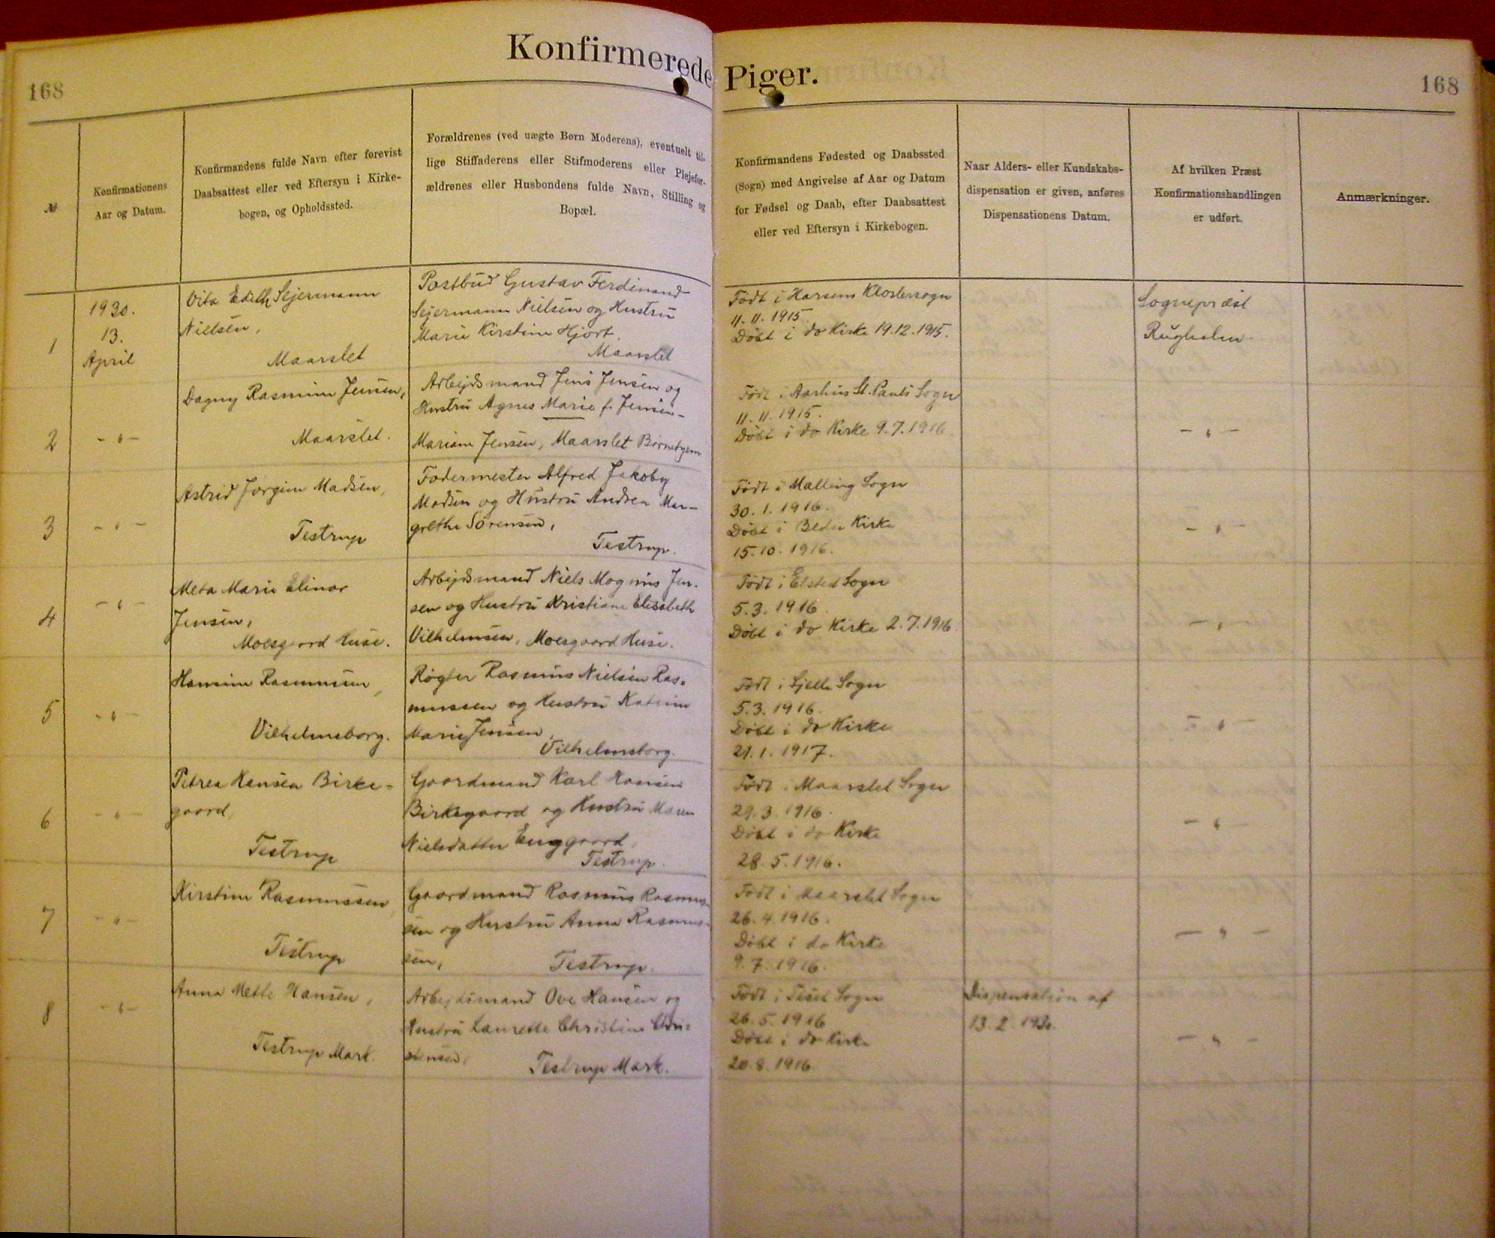 Konfirmerede Piger.
168
168
№
Konfirmationens
Aar og Datum.
Konfirmandens fulde Navn efter forevist
Daabsattest eller ved Eftersyn i Kirke-
bogen, og Opholdssted.
Forældrenes (ved uægte Børn Moderens), eventuelt til-
lige Stiffaderens eller Stifmoderens eller Plejefor-
ældrenes eller Husbondens fulde Navn, Stilling og
Bopæl.
Konfirmandens Fødested og Daabssted
(Sogn) med Angivelse af Aar og Datum
for Fødsel og Daab, efter Daabsattest
eller ved Eftersyn i Kirkebogen.
Naar Alders- eller Kundskabs-
dispensation er given, anføres
Dispensationens Datum.
Af hvilken Præst
Konfirmationshandlingen
er udført.
Anmærkninger.
1
1930.
13.
April
Vita Edith Sejermann
Nielsen,
Maarslet
Postbud Gustav Ferdinand
Sejermann Nielsen og Hustru
Marie Kirstine Hjort.
Maarslet
Født i Horsens Klostersogn
11.11.1915.
Døbt i do Kirke 19.12.1915.
Sognepræst
Rügholm
2
-"-
Dagny Rasmine Jensen,
Maarslet.
Arbejdsmand Jens Jensen og
Hustru Agnes Marie f. Jensen-
Mariane Jensen, Maarslet Børnehjem
Født i Aarhus St. Pauls Sogn
11.11.1915.
Døbt i do Kirke 9.7.1916.
-"-
3
-"-
Astrid Jørgine Madsen,
Testrup
Fodermester Alfred Jakoby
Madsen og Hustru Andrea Mar-
grethe Sørensen,
Testrup.
Født i Malling Sogn
30.1.1916.
Døbt i Beder Kirke
15.10.1916.
-"-
4
-"-
Meta Marie Elinor
Jensen,
Moesgaard Huse.
Arbejdsmand Niels Mognus Jen-
sen og Hustru Kristiane Elisabeth
Vilhelmsen, Moesgaard Huse.
Født i Elsted Sogn
5.3.1916.
Døbt i do Kirke 2.7.1916
-"-
5
-"-
Hansine Rasmussen,
Vilhelmsborg.
Røgter Rasmus Nielsen Ras-
mussen og Hustru Katrine
Marie Jensen,
Vilhelmsborg.
Født i Sjelle Sogn
5.3.1916.
Døbt i do Kirke
21.1.1917.
-"-
6
-"-
Petrea Hansen Birke-
gaard,
Testrup
Gaardmand Karl Hansen
Birkegaard og Hustru Maren
Nielsdatter Enggaard,
Testrup.
Født i Maarslet Sogn
29.3.1916.
Døbt i do Kirke
28.5.1916.
-"-
7
-"-
Kirstine Rasmussen,
Testrup
Gaardmand Rasmus Rasmus-
sen og Hustru Anna Rasmus-
sen,
Testrup.
Født i Maarslet Sogn
26.4.1916.
Døbt i do Kirke
9.7.1916.
-"-
8
-"-
Anna Mette Hansen,
Testrup Mark.
Arbejdsmand Ove Hansen og
Hustru Laurette Christine Chri-
stensen,
Testrup Mark.
Født i Sogn
26.5.1916
Døbt i do Kirke
20.8.1916.
Dispensation af
13.2.1930.
-"-